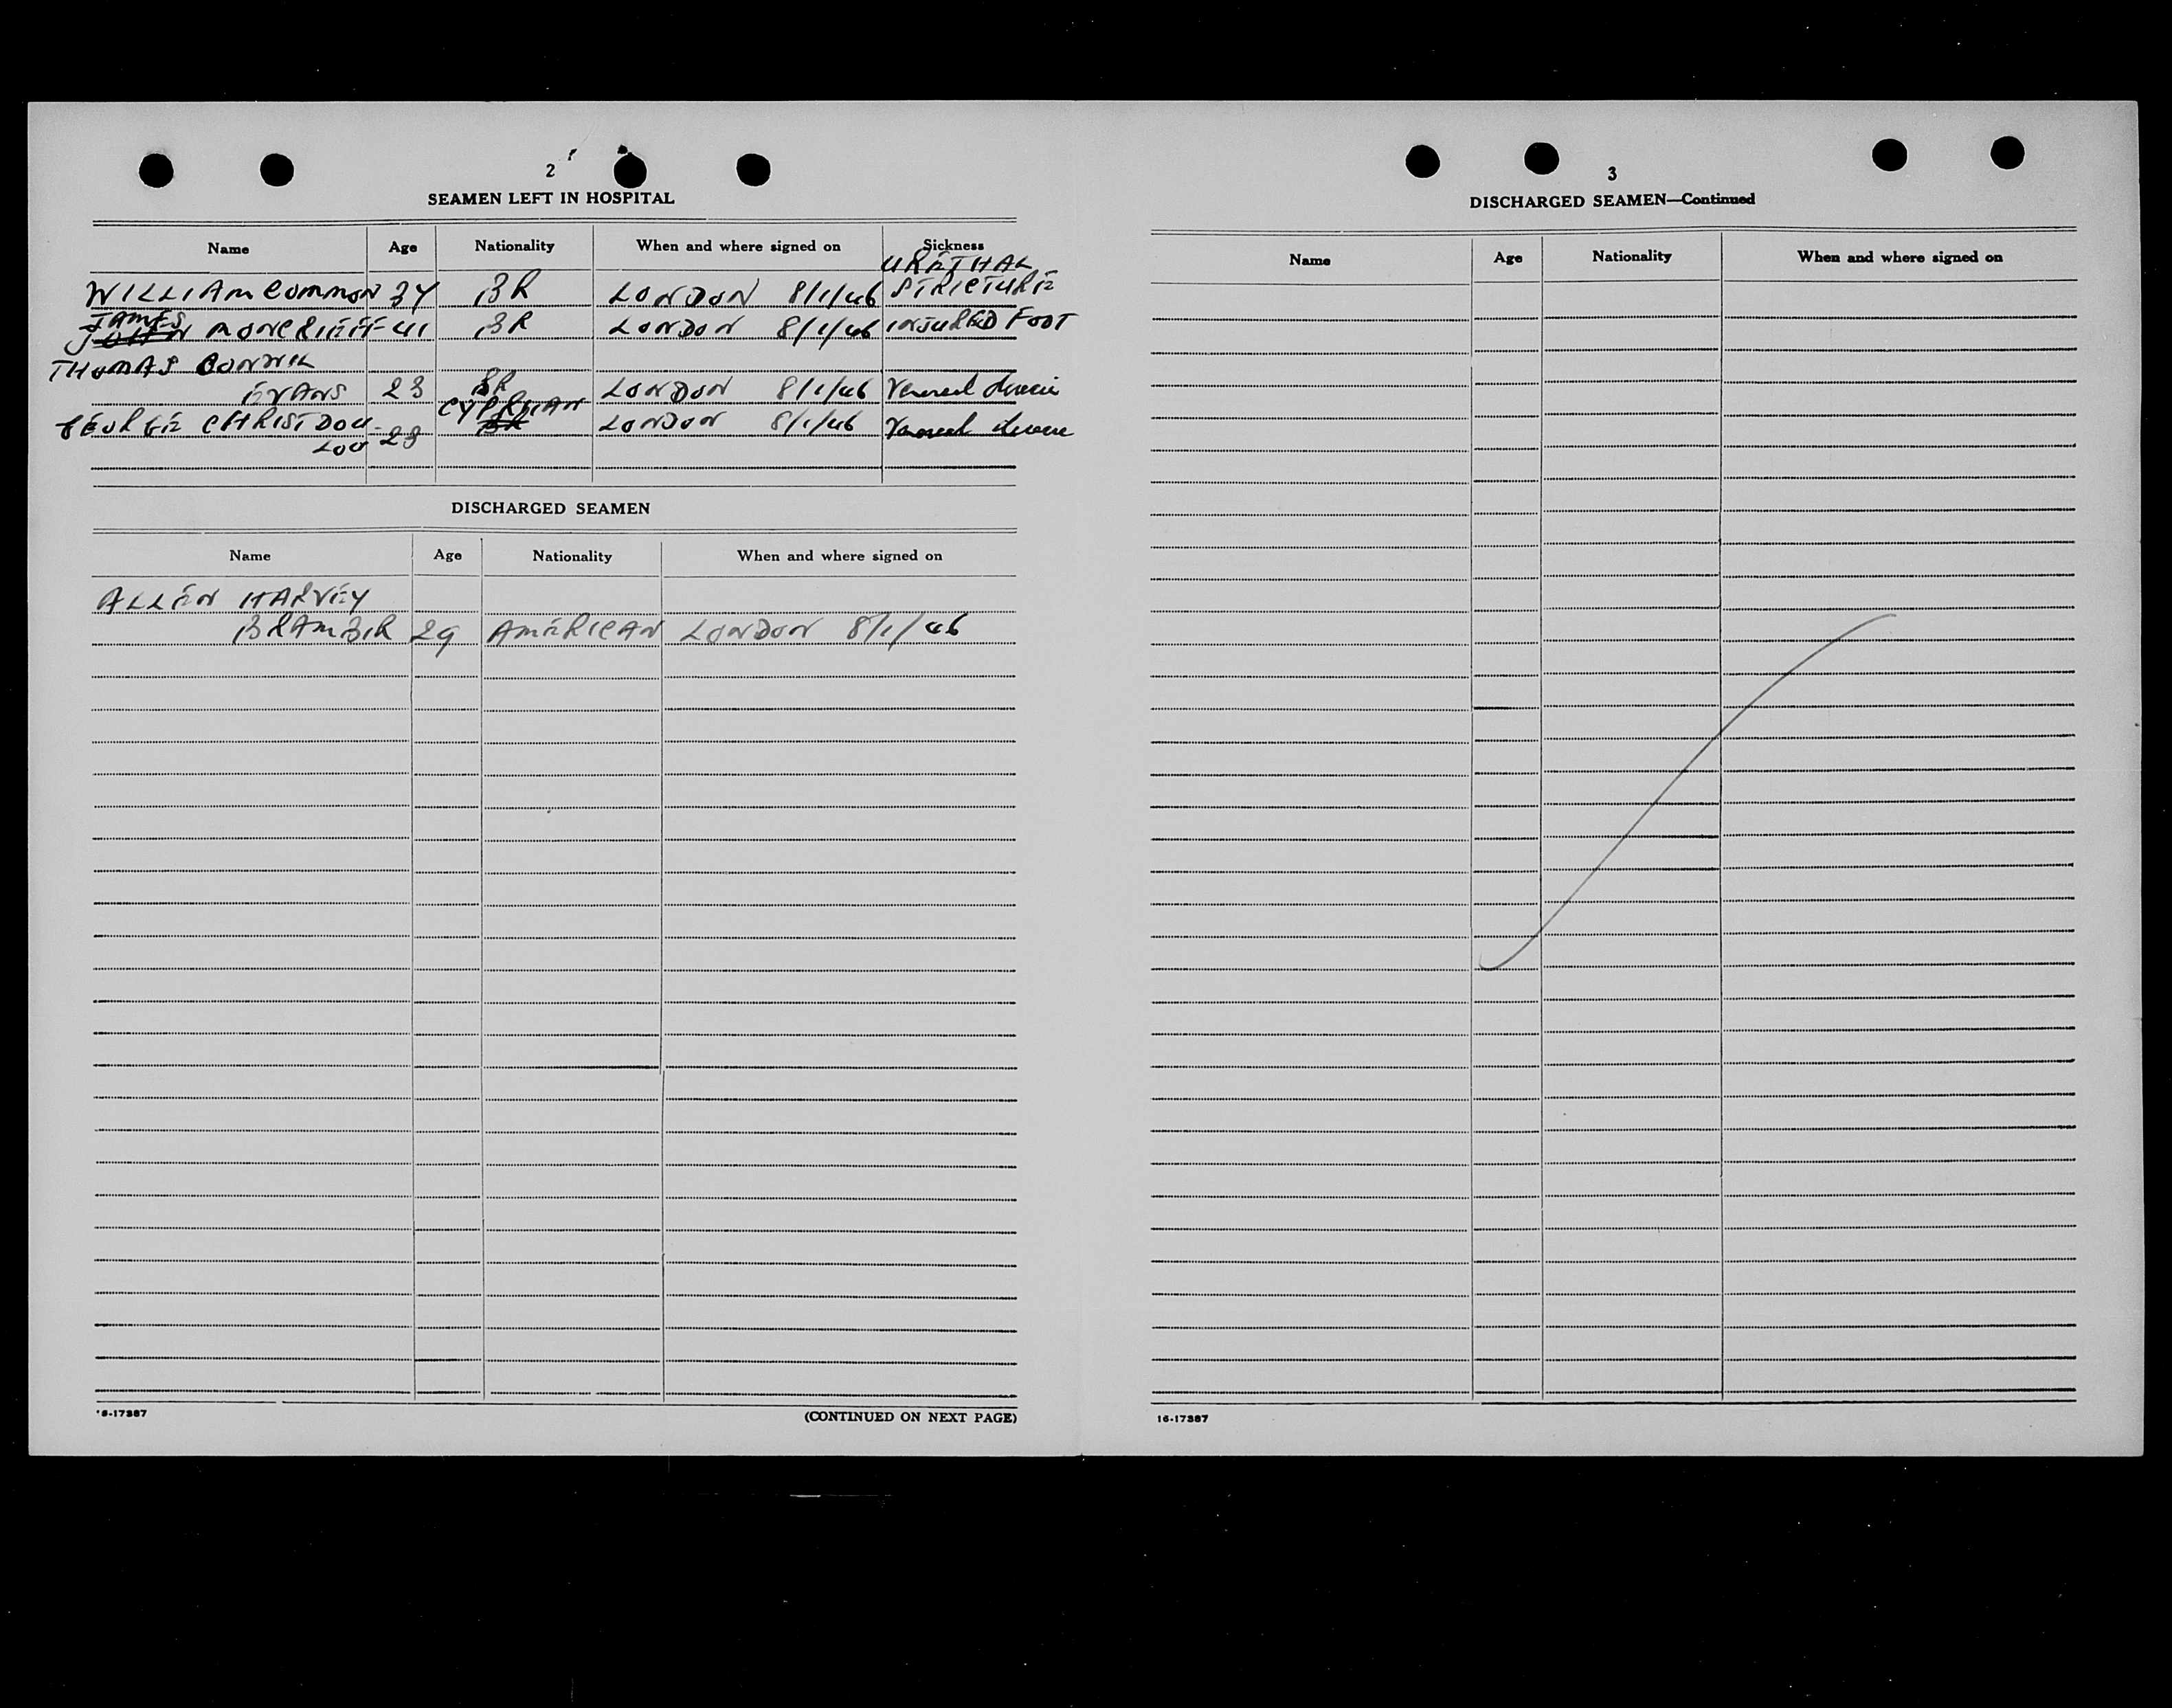 2
SEAMEN LEFT IN HOSPITAL
Name Age Nationality When and where signed on Sickness
URETHAL
WILLIAM COMMON 34 BR LONDON 8/1/46 STRICTURE
JAMES
JOHN MONCRIEFF 41 BR LONDON 8/1/46 INJURED FOOT
THOMAS
EVANS 23 BR LONDON 8/1/46 Venereal disease
CYPRIAN
GEORGE CHRISTDOU BR LONDON 8/1/46 Venereal disease
LOU 28
DISCHARGED SEAMEN
Name Age Nationality When and where signed on
ALLEN HARVEY
BRAMBIR 29 AMERICAN LONDON 8/1/46
16-17387
(CONTINUED ON NEXT PAGE)
3
DISCHARGED SEAMEN—Continued
Name Age Nationality When and where signed on
16-17387